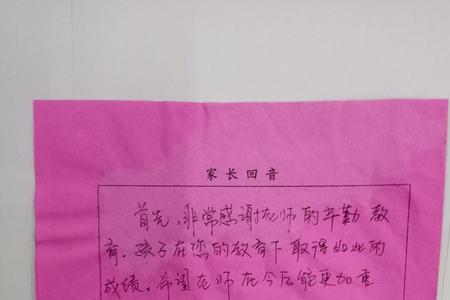 家长回音
首先，非常感谢老师的辛勤教
育。孩子在您的教育下取得如此的
成绩，希望老师在今后能更加重